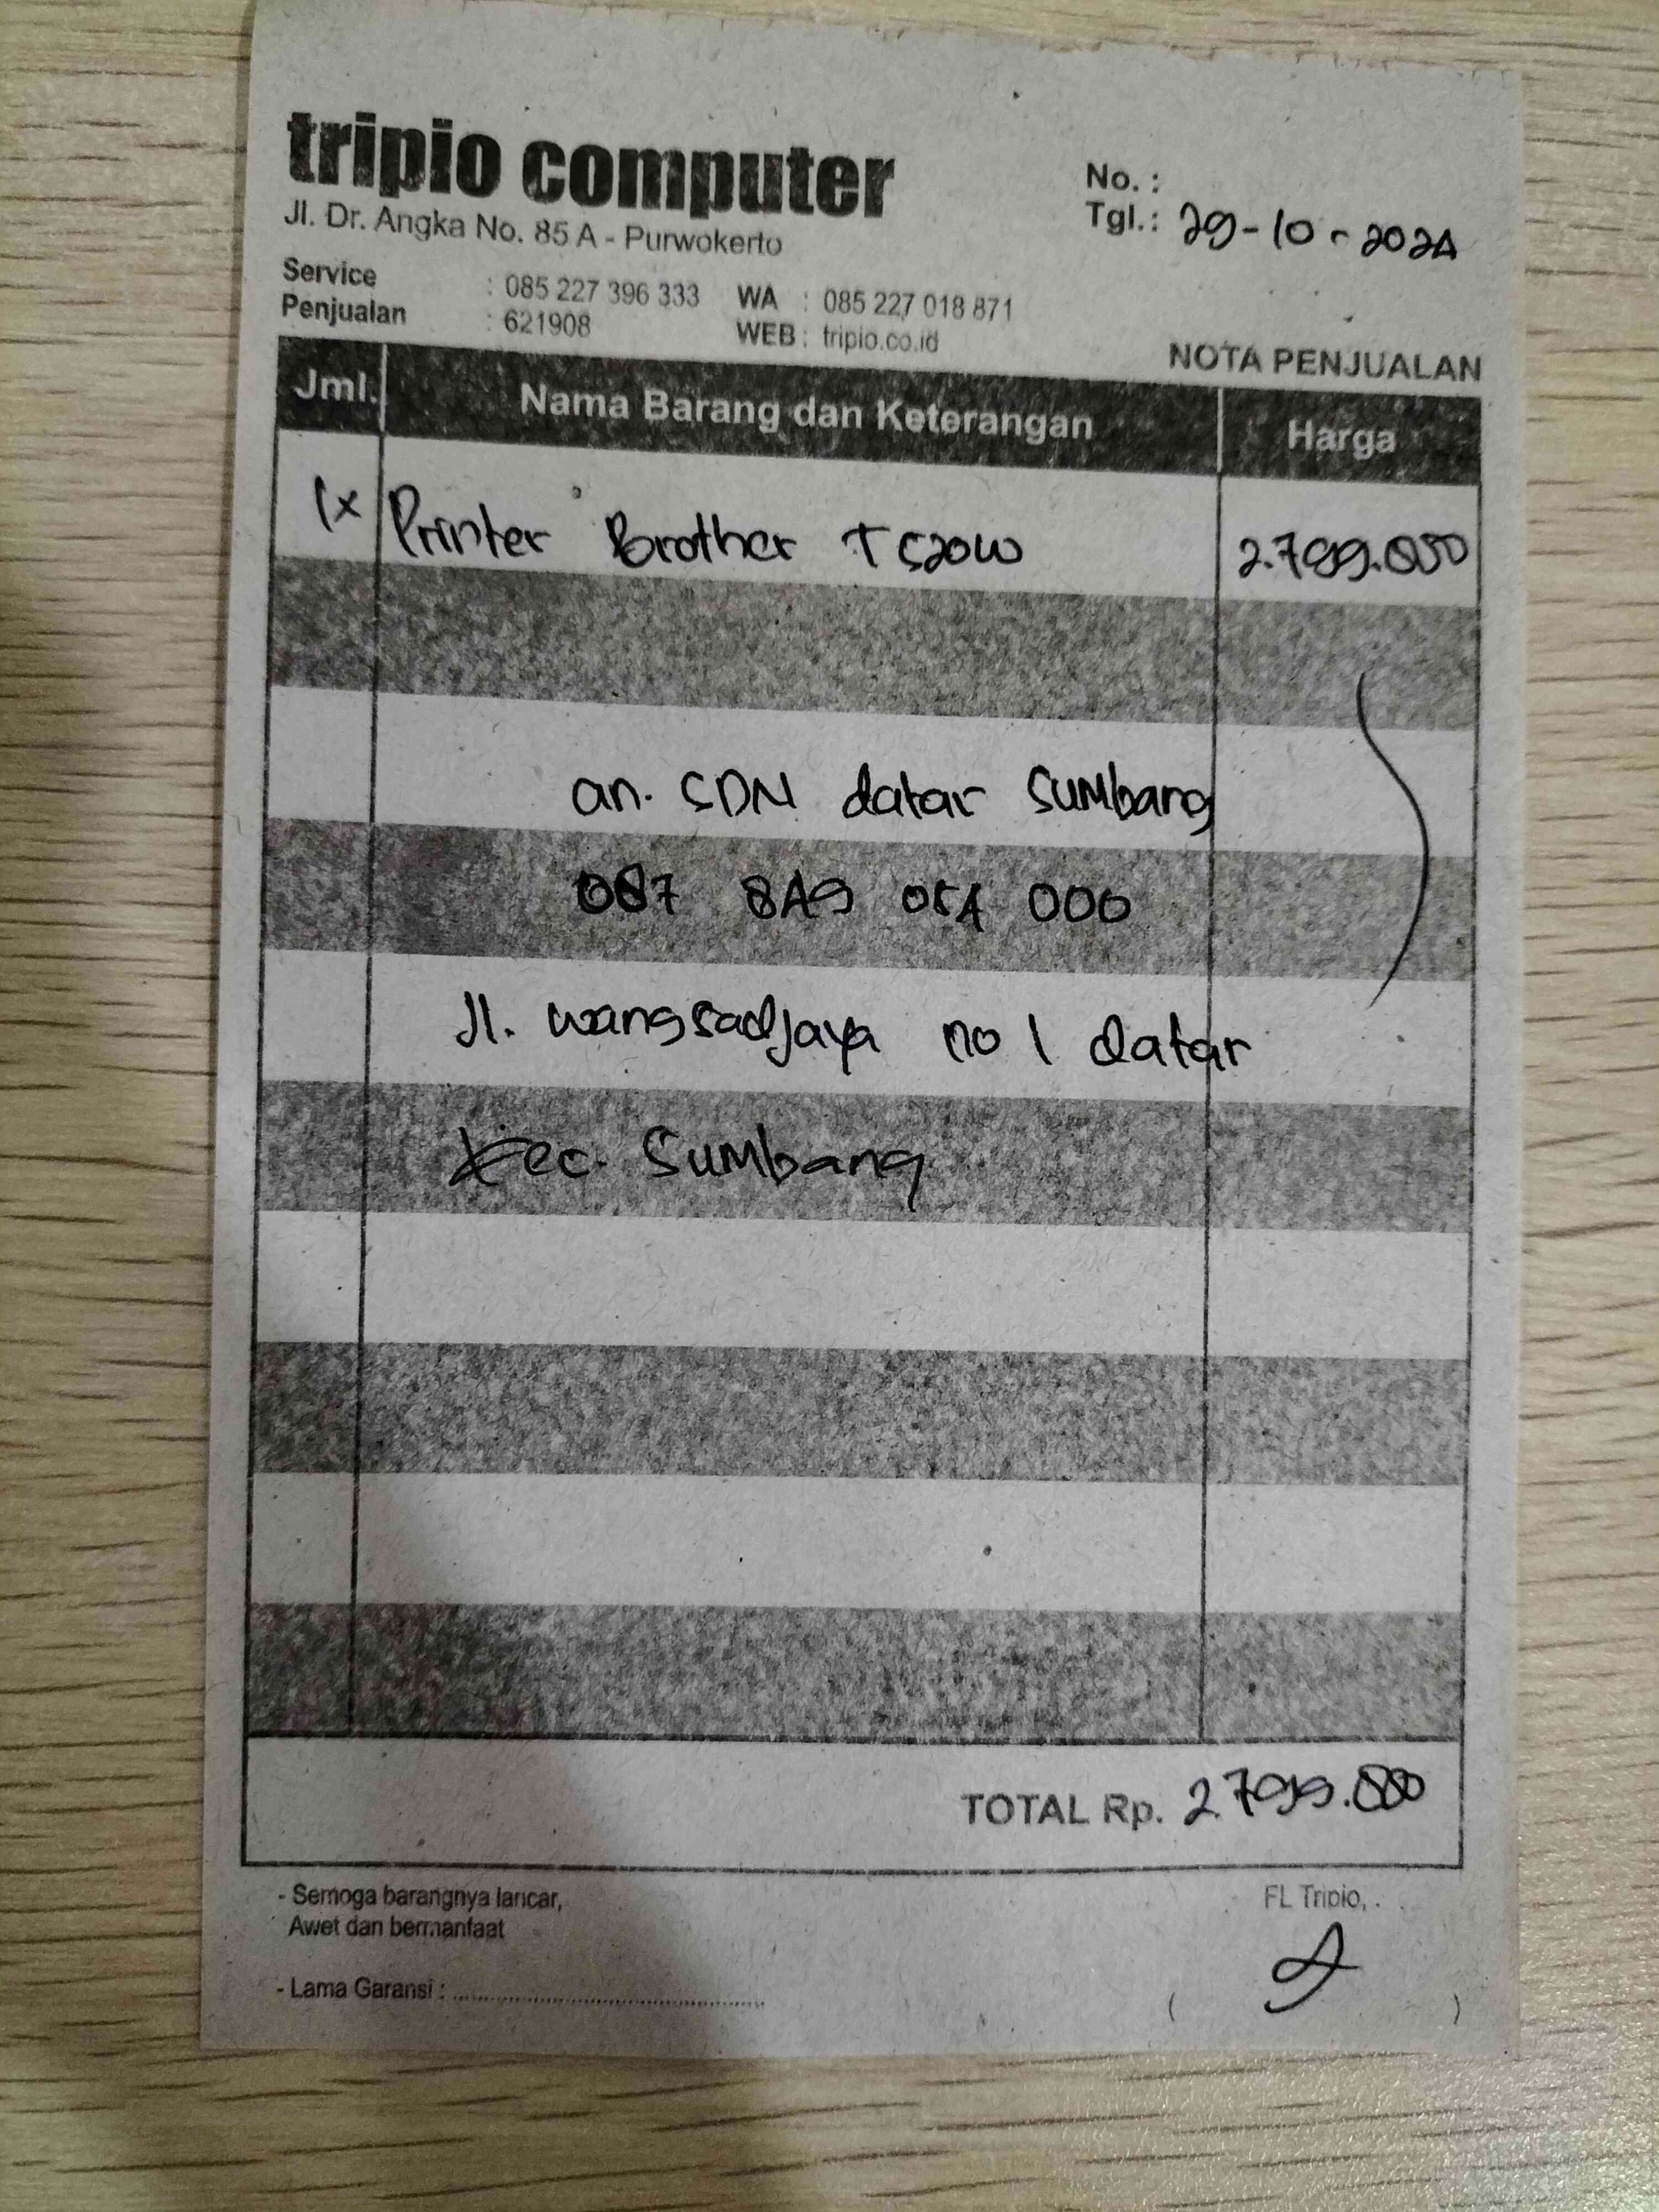 tripio computer
Jl. Dr. Angka No. 85 A - Purwokerto
No. :
Tgl. : 29-10-2024
Service : 085 227 396 333 WA : 085 227 018 871
Penjualan : 621908 WEB : tripio.co.id
NOTA PENJUALAN
Jml. Nama Barang dan Keterangan Harga
1x Printer Brother T520W 2.799.000
an. SDN datar Sumbang
087 849 054 000
Jl. wangsadjaya no 1 datar
kec. Sumbang
TOTAL Rp. 2.799.000
- Semoga barangnya lancar,
Awet dan bermanfaat
FL Tripio,
- Lama Garansi :
( )